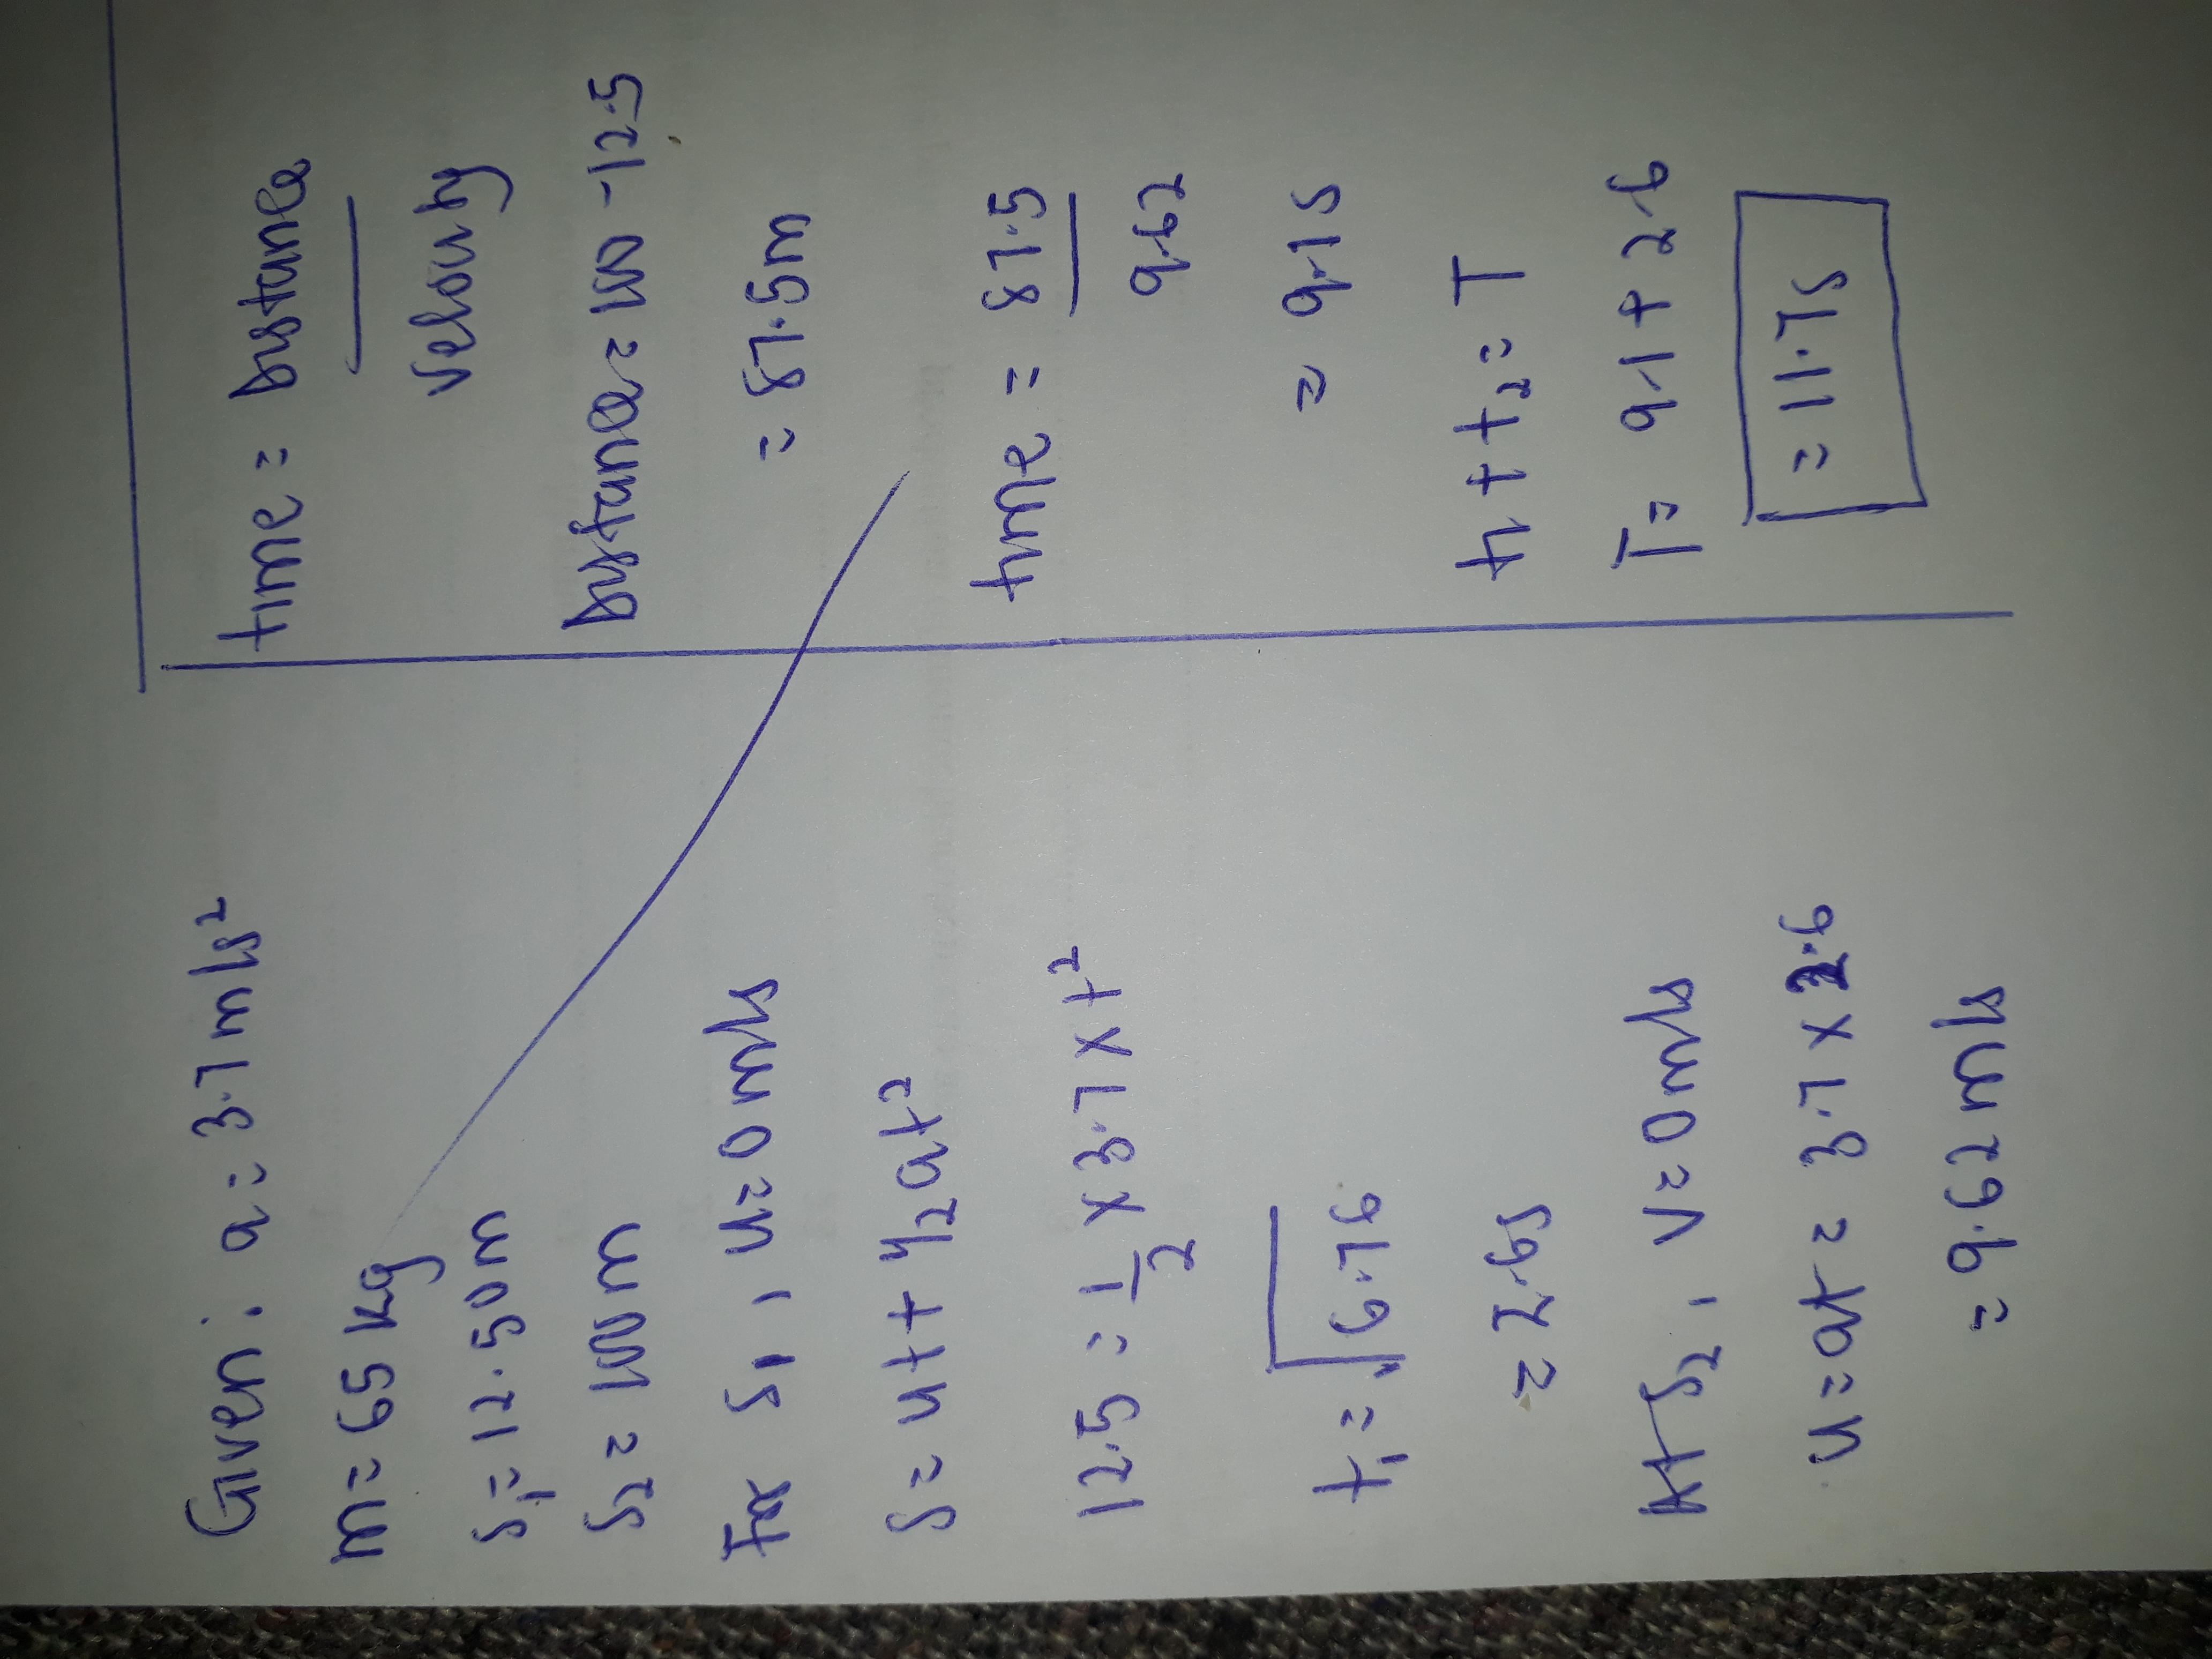 Given: a = 3.7 m/s²
m = 65 kg
s₁ = 12.50m
s₂ = 100m
For s₁, u = 0 m/s
s = ut + ½at²
12.5 = 1/2 x 3.7 x t²
t₁ = √6.76
= 2.6s
At s₂, v = 0 m/s
u = at = 3.7 x 2.6
= 9.62 m/s
time = Distance
velocity
Distance = 100 - 12.5
= 87.5m
time = 87.5
9.62
= 9.1s
t₁ + t₂ = T
T = 9.1 + 2.6
= 11.7s